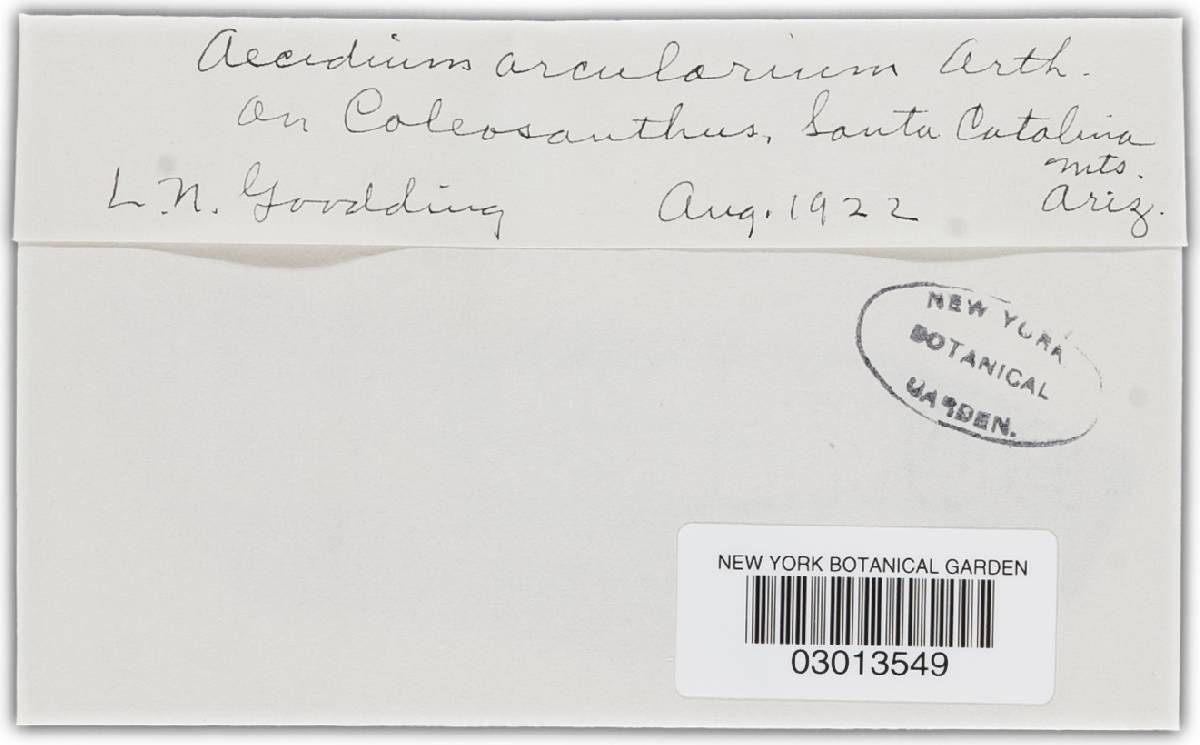 Aecidium arcularium Arth.
on Coleosanthus, Santa Catalina
mts.
L. N. Goodding Aug. 1922 Ariz.
NEW YORK
BOTANICAL
GARDEN.
NEW YORK BOTANICAL GARDEN
03013549